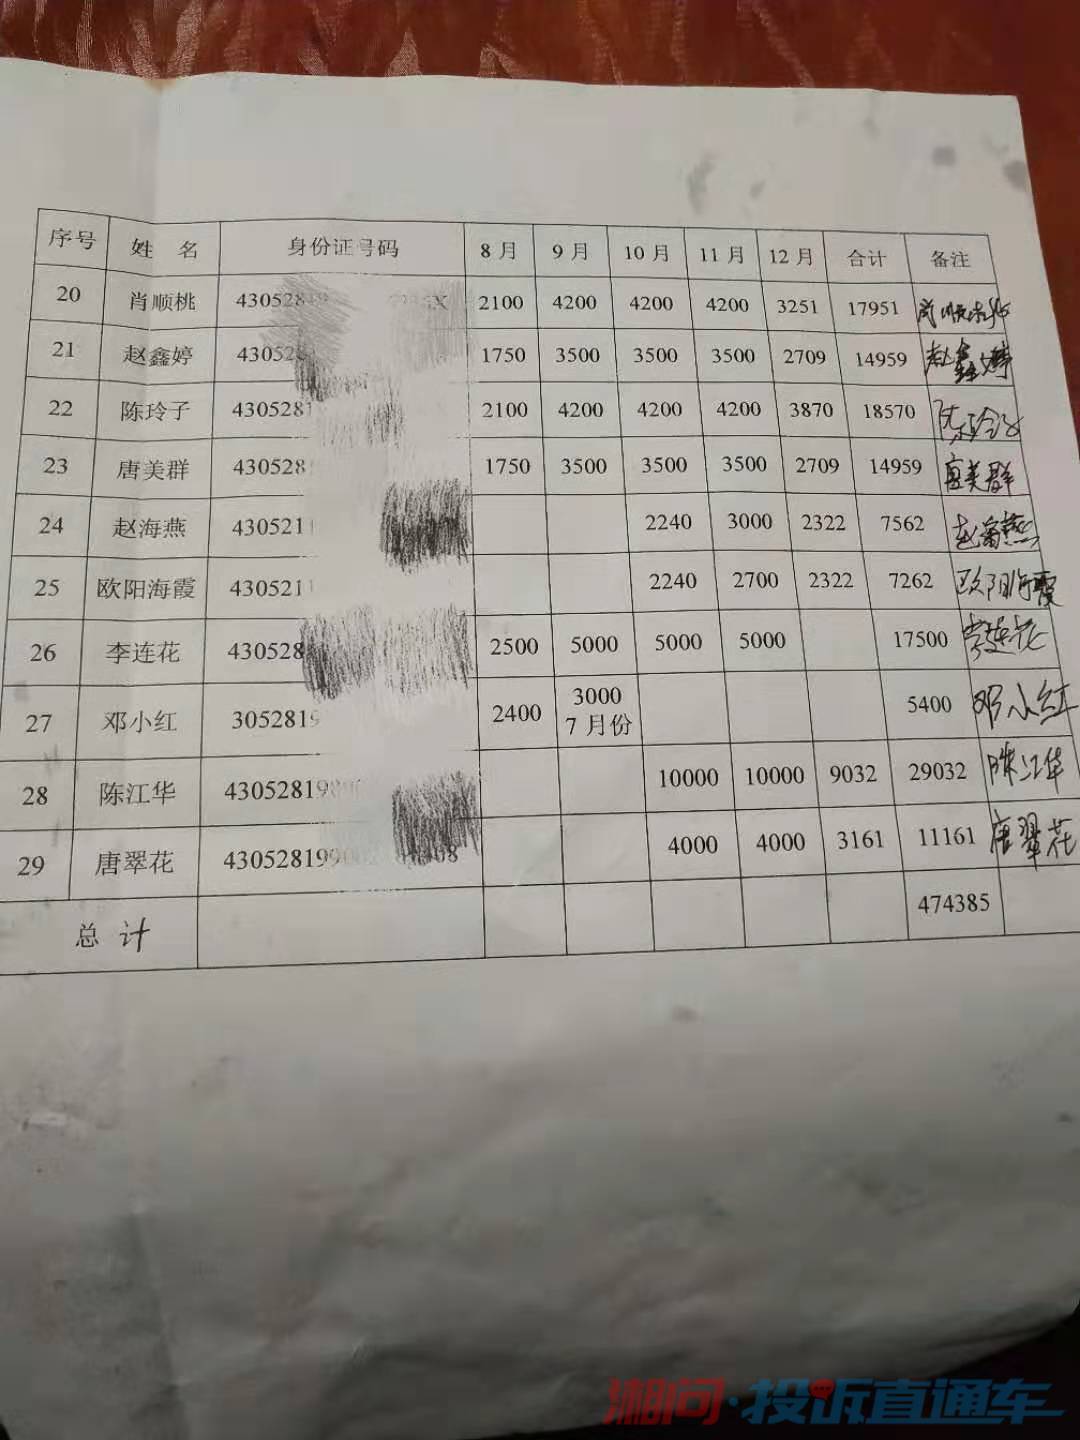 序号 姓 名 身份证号码 8月 9月 10月 11月 12月 合计 备注
20 肖顺桃 4305281 X 2100 4200 4200 4200 3251 17951 肖顺桃
21 赵鑫婷 430528 1750 3500 3500 3500 2709 14959 赵鑫婷
22 陈玲子 4305281 2100 4200 4200 4200 3870 18570 陈玲子
23 唐美群 430528 1750 3500 3500 3500 2709 14959 唐美群
24 赵海燕 430521 2240 3000 2322 7562 赵海燕
25 欧阳海霞 430521 2240 2700 2322 7262 欧阳海霞
26 李连花 430528 2500 5000 5000 5000 17500 李连花
27 邓小红 3052819 2400 3000 5400 邓小红
7月份
28 陈江华 430528198 10000 10000 9032 29032 陈江华
29 唐翠花 430528199 4000 4000 3161 11161 唐翠花
总 计 474385
湘问·投诉直通车